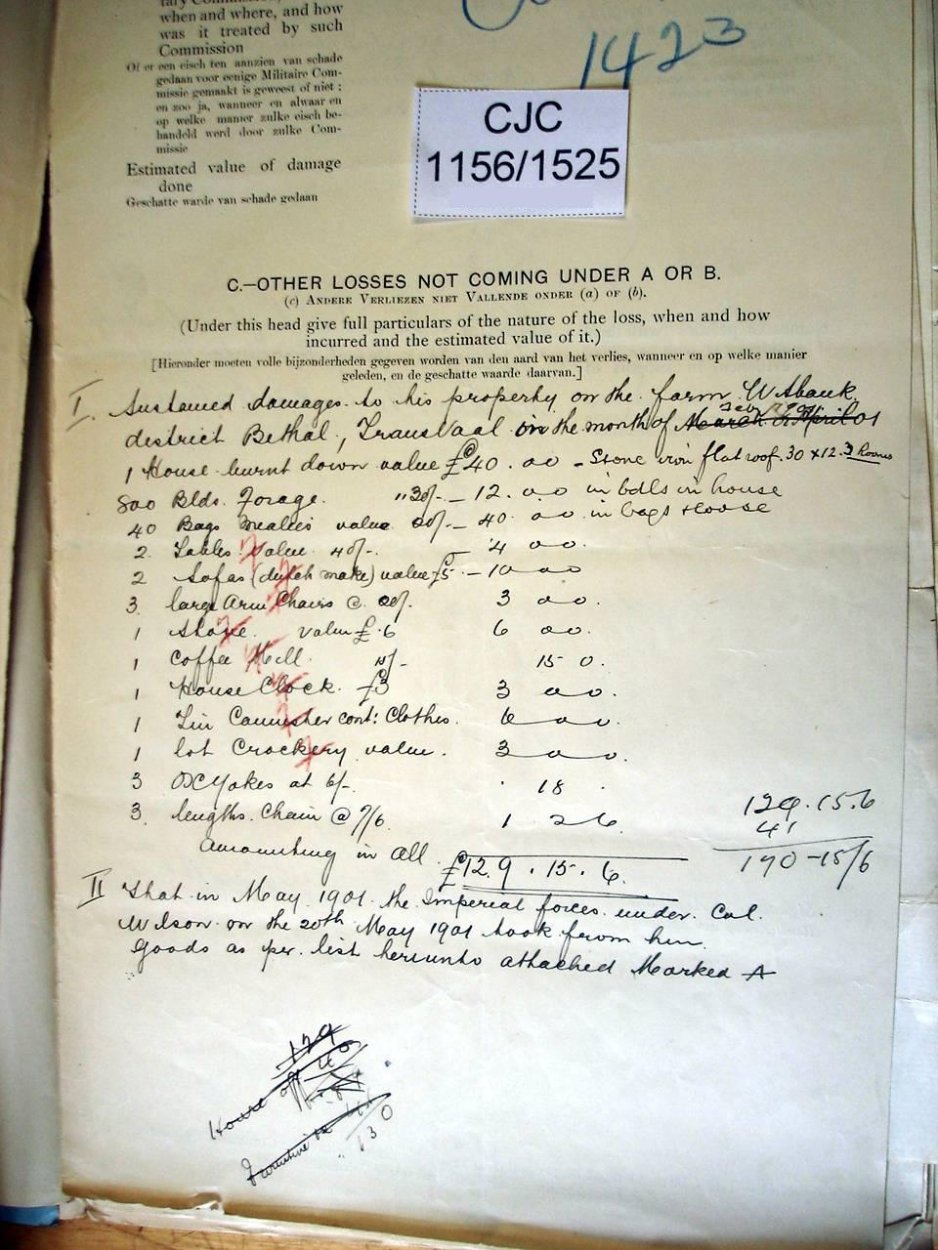 when and where, and how
was it treated by such
Commission
Of er een eisch ten aanzien van schade
gedaan voor eenige Militaire Com-
missie gemaakt is geweest of niet ;
en zoo ja, wanneer en alwaar en
op welke manier zulke eisch be-
handeld werd door zulke Com-
missie
Estimated value of damage
done
Geschatte warde van schade gedaan
1423
CJC
1156/1525
C.—OTHER LOSSES NOT COMING UNDER A OR B.
(c) ANDERE VERLIEZEN NIET VALLENDE ONDER (a) OF (b).
(Under this head give full particulars of the nature of the loss, when and how
incurred and the estimated value of it.)
[Hieronder moeten volle bijzonderheden gegeven worden van den aard van het verlies, wanneer en op welke manier
geleden, en de geschatte waarde daarvan.]
I. Sustained damages to his property on the farm Witbank
district Bethal, Transvaal in the month of March or April 01
1 House burnt down value £40 . 0 0 - Stone iron flat roof. 30 x 12. 3 Rooms
800 Bdls. Forage. " 30/- - 12. 0 0 in bdls in house
40 Bags Mealies value 20/- - 40 0 0 in bags & loose
2. Tables Value 40/-. 4 0 0.
2 Sofas (dutch make) value £5 - 10 0 0
3. large Arm Chairs @ 20/. 3 0 0.
1 Stove. value £.6 6 0 0.
1 Coffee Mill. 15/- 15 0.
1 House Clock. £3 3 0 0.
1 Tin Cannister cont: Clothes. 6 0 0.
1 lot Crockery value. 3 0 0.
3 Ox Yokes at 6/- . 18 .
3. lengths. Chain @ 7/6 1 2 6
129.15.6
41
170-15/6
Amounting in all. £129.15.6.
II That in May 1901 the Imperial forces under Col.
Wilson on the 20th May 1901 took from him
goods as per list hereunto attached Marked A
129
House off 40
Furniture
130